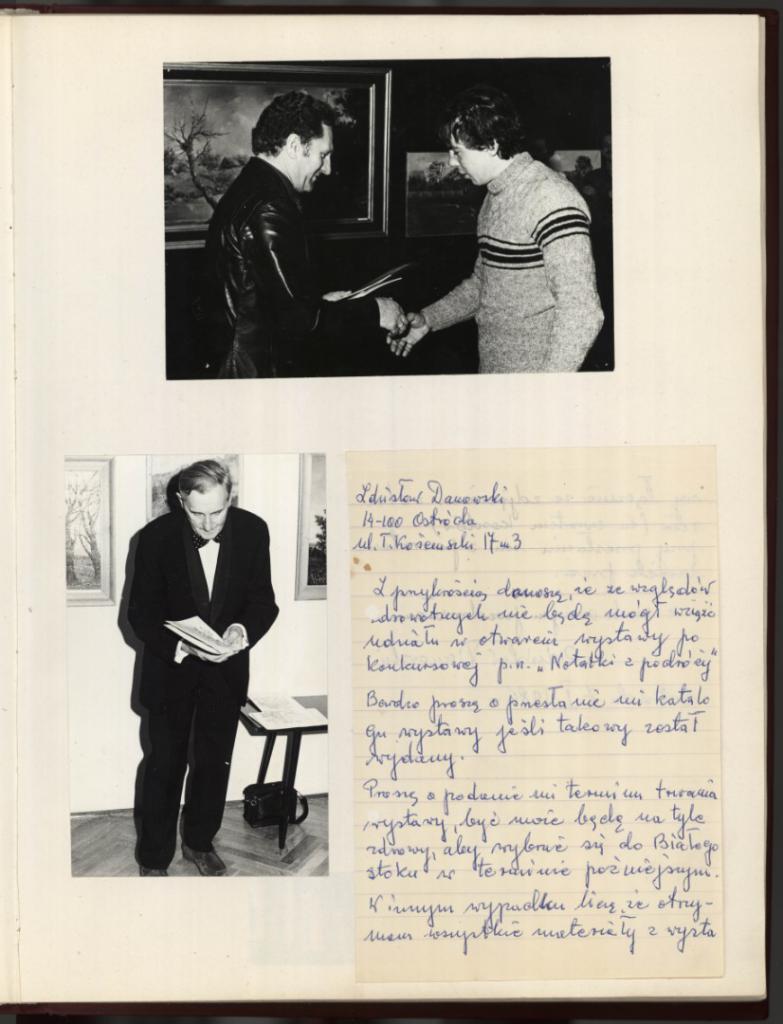 Zdzisław Danowski
14-100 Ostróda
ul. T. Kościuszki 17 m 3
Z przykrością donoszę, że ze względów
zdrowotnych nie będę mógł wziąść
udziału w otwarciu wystawy po
konkursowej p.n. „Notatki z podróży"
Bardzo proszę o przesłanie mi katalo
gu wystawy jeśli takowy został
wydany.
Proszę o podanie mi terminu trwania
wystawy, być może będę na tyle
zdrowy, aby wybrać się do Białego
stoku w terminie poźniejszym.
W innym wypadku liczę, że otrzy-
mam wszystkie materiały z wysta